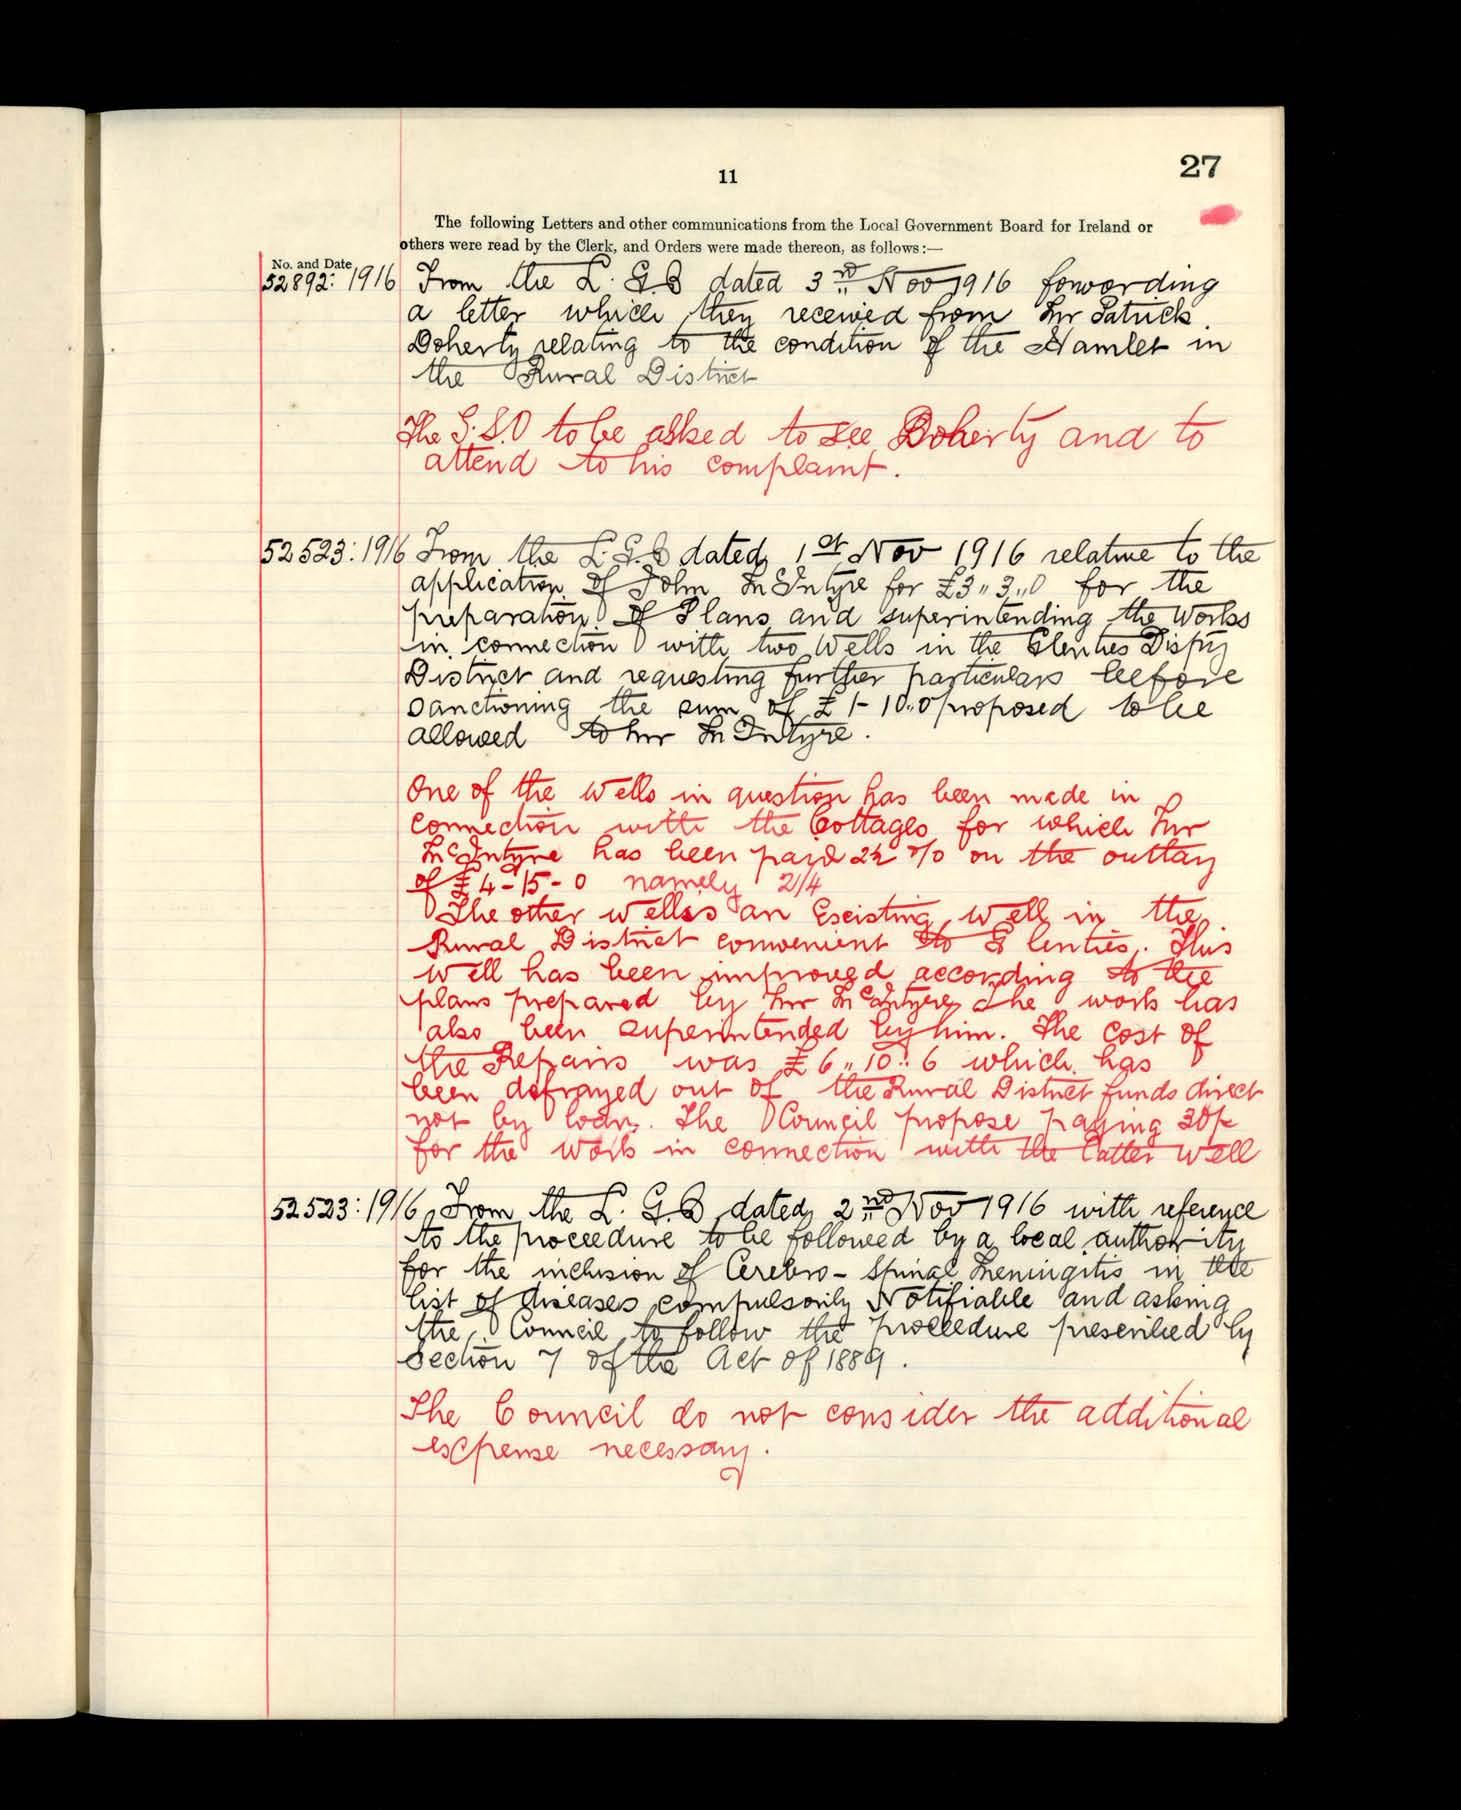 27
11
The following Letters and other communications from the Local Government Board for Ireland or
others were read by the Clerk, and Orders were made thereon, as follows:—
No. and Date
52892: 1916 From the L. G. B dated 3rd Nov 1916 forwarding
a letter which they received from Mr Patrick
Doherty relating to the condition of the Hamlet in
the Rural District
The G.S.O to be asked to see Doherty and to
attend to his complaint.
52523: 1916 From the L. G. B dated 1st Nov 1916 relative to the
application of John McIntyre for £3,,3,,0 for the
preparation of Plans and superintending the Works
in connection with two Wells in the Glenties Dispy
District and requesting further particulars before
Sanctioning the sum of £1-10,,0 proposed to be
allowed to Mr McIntyre.
One of the Wells in question has been made in
connection with the Cottages for which Mr
McIntyre has been paid 2½ % on the outlay
of £4-15-0 namely 2/4
The other well is an Existing well in the
Rural District convenient to Glenties. This
well has been improved according to the
plans prepared by Mr McIntyre, The work has
also been superintended by him. The cost of
the Repairs was £6,,10,,6 which has
been defrayed out of the Rural District funds direct
not by loan. The Council propose paying 30/-
for the work in connection with the latter well
52523: 1916 From the L. G. B dated 2nd Nov 1916 with reference
to the proceedure to be followed by a local authority
for the inclusion of Cerebro-Spinal Meningitis in the
list of diseases compulsorily Notifiable and asking
the Council to follow the proceedure prescribed by
Section 7 of the Act of 1889.
The Council do not consider the additional
expense necessary.